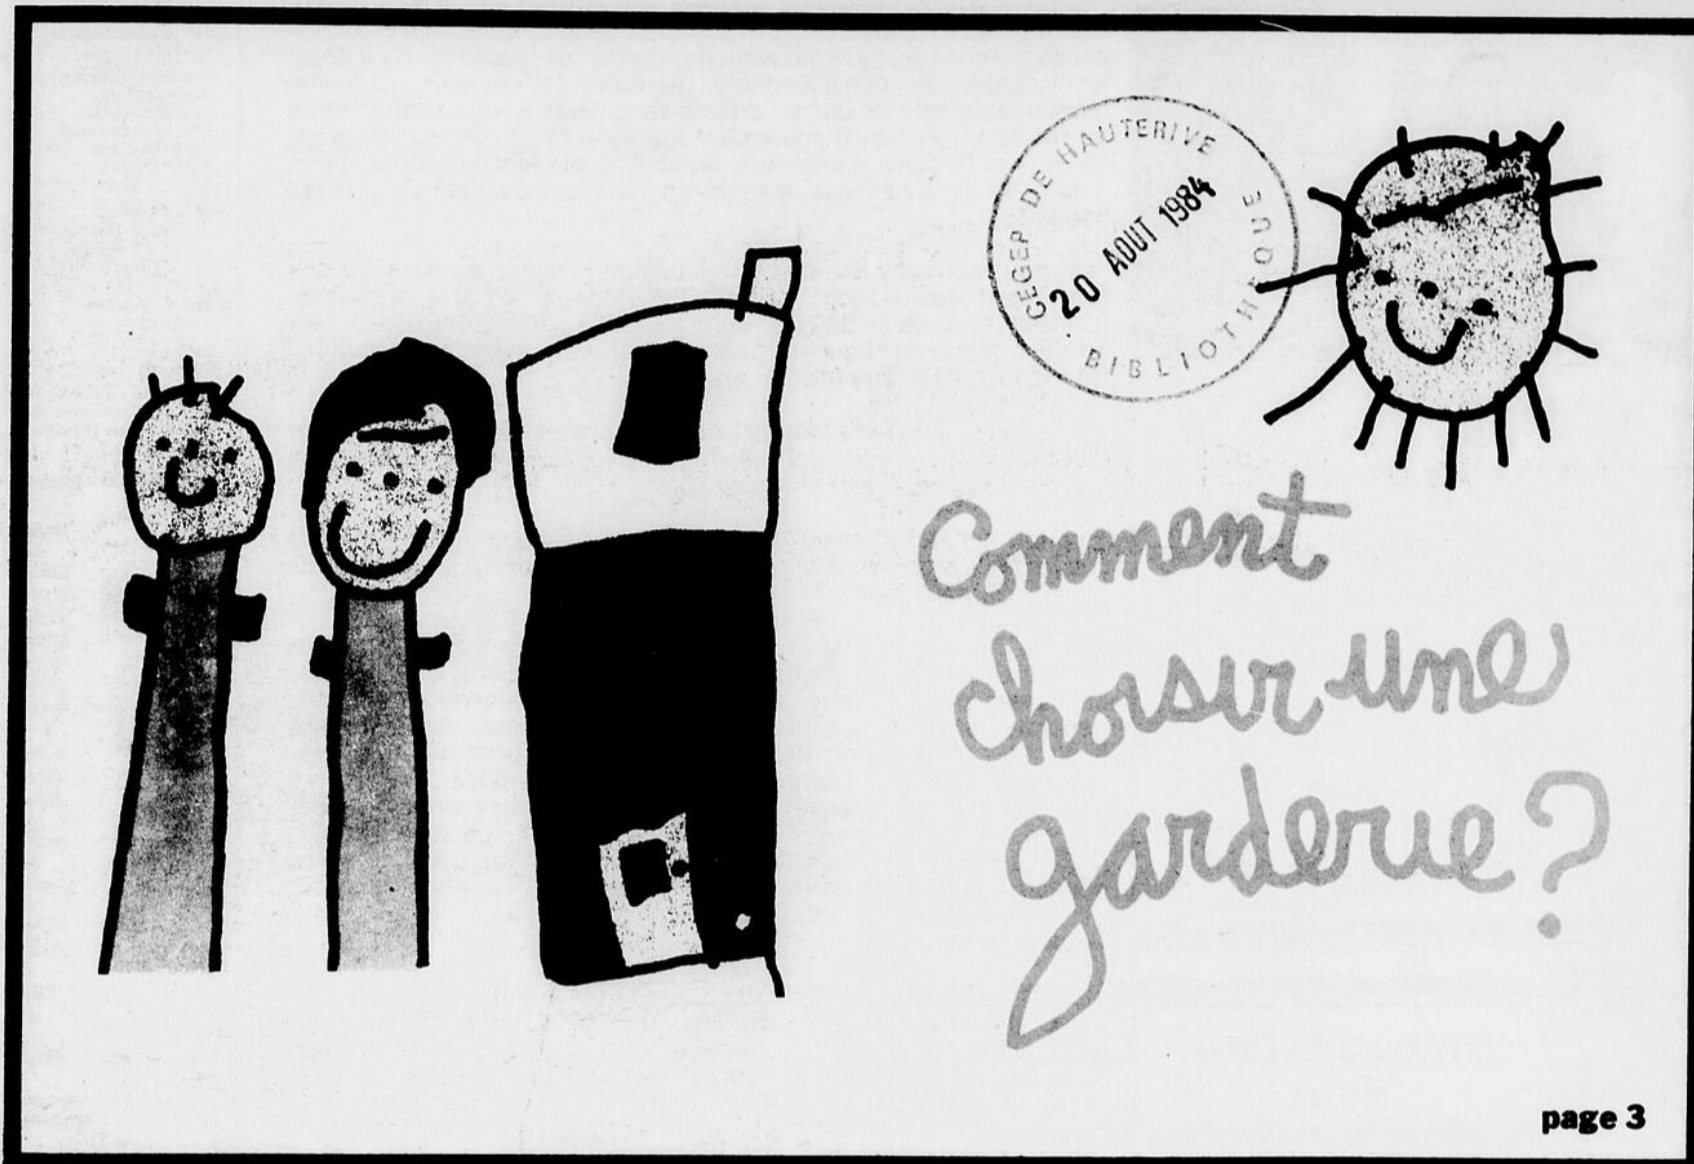 CEGEP DE HAUTERIVE
20 AOUT 1984
BIBLIOTHÈQUE
Comment
choisir une
garderie?
page 3